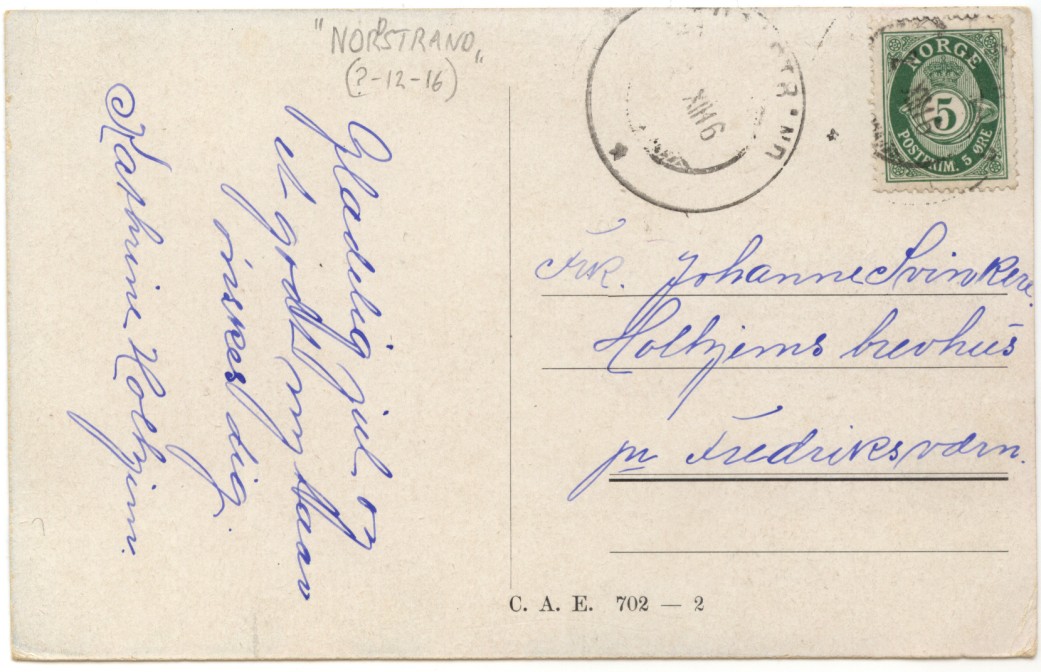 "NORSTRAND"
(?-12-16)
Glædelig jul og
et godt nyt aar
önskes dig.
Kathrine Holhjem.
XII 16
NORGE
5
POSTFRIM. 5 ØRE
Frk. Johanne Svinkere.
Holhjems brevhus
pr Fredriksværn.
C. A. E. 702 — 2